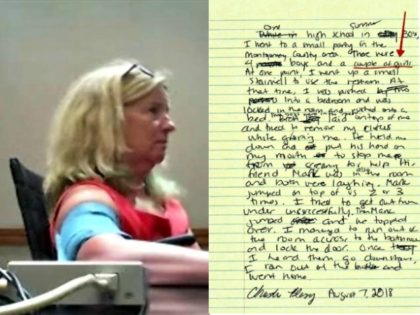 One summer
high school in 80s,
I went to a small party in the
Montgomery County area. There were
4 boys and a couple of girls.
At one point, I went up a small
stairwell to use the restroom. At
that time, I was pushed
into a bedroom and was
locked in the room and pushed onto a
bed. boy laid on top of me
and tried to remove my clothes
while groping me. He held me
down and put his hand on
my mouth to stop me
from screaming for help. His
friend Mark was in the room
and both were laughing. Mark
jumped on top of us 2 or 3
times. I tried to get out from
under unsuccessfully. Then Mark
jumped and we toppled
over. I managed to run out of
the room across to the bathroom
and lock the door. Once
I heard them go downstairs,
I ran out of the house and
went home.
August 7, 2018